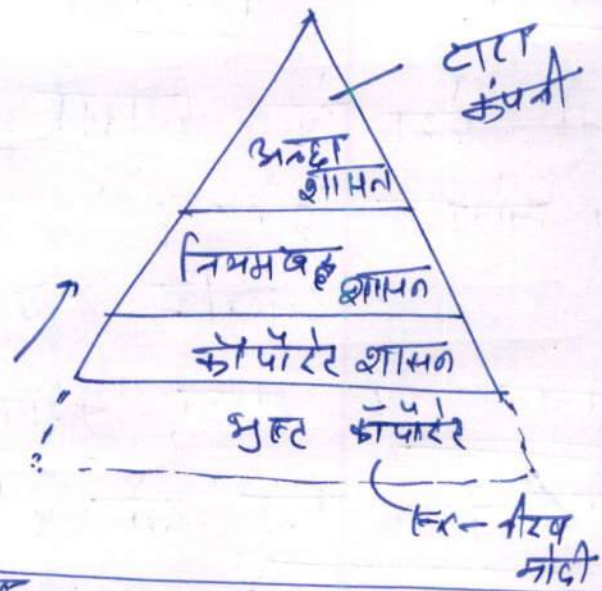 टाटा
कंपनी
अच्छा
शासन
नियमबद्ध
शासन
कॉर्पोरेट शासन
भ्रष्ट कॉर्पोरेट
Ex- नीरव
मोदी